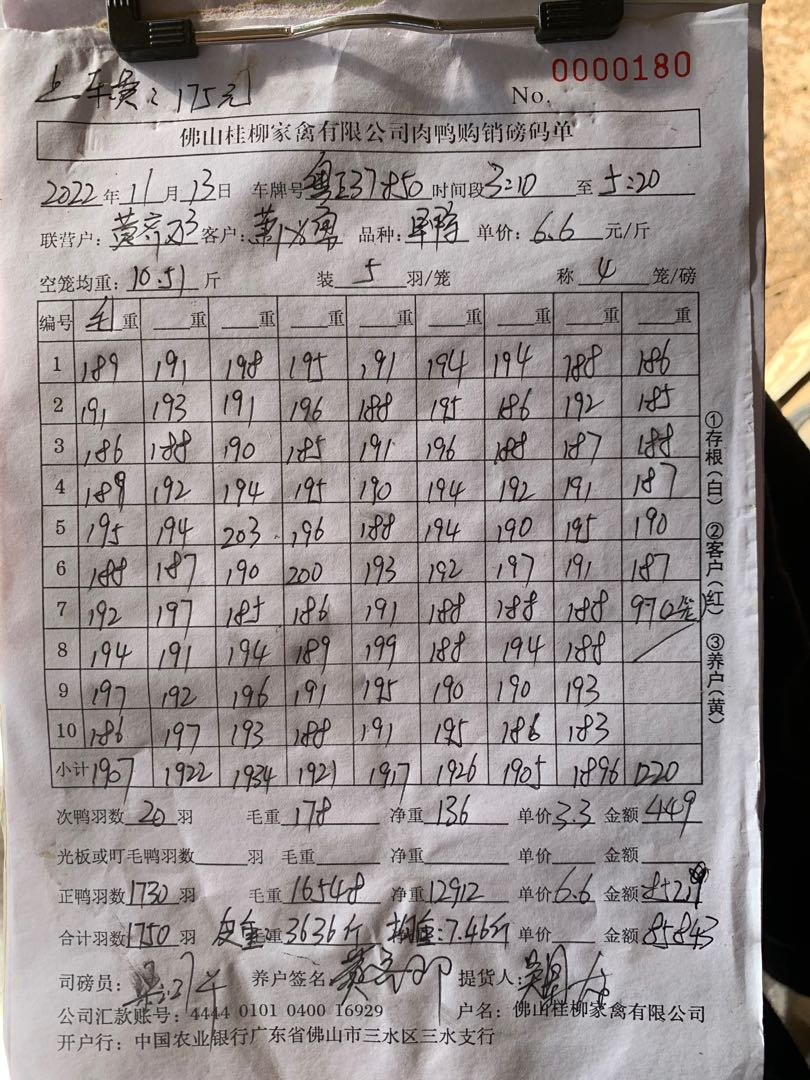 上车费:175元
No. 0000180
佛山桂柳家禽有限公司肉鸭购销磅码单
2022年11月13日 车牌号粤E37850时间段3:10至5:20
联营户:黄 客户:萧 品种: 鸭 单价:6.6元/斤
空笼均重:10.51斤 装5羽/笼 称4笼/磅
编号 毛重 重 重 重 重 重 重 重 重
1 189 191 198 195 191 194 194 188 186
2 191 193 191 196 188 195 186 192 185
3 186 188 190 185 191 196 188 187 188
4 189 192 194 195 190 194 192 191 187
5 195 194 203 196 188 194 190 195 190
6 188 187 190 200 193 192 197 191 187
7 192 197 185 186 191 188 188 188 97(2笼)
8 194 191 194 189 199 188 194 188
9 197 192 196 191 195 190 190 193
10 186 197 193 188 191 195 186 183
小计 1907 1922 1934 1921 1917 1926 1905 1896 1220
①存根(白) ②客户(红) ③养户(黄)
次鸭羽数20羽 毛重178 净重136 单价3.3 金额449
光板或叮毛鸭羽数 羽 毛重 净重 单价 金额
正鸭羽数1730羽 毛重16548 净重12912 单价6.6 金额85219
合计羽数1750羽 皮重:毛重3636斤 均重:7.46斤 单价 金额85843
司磅员: 养户签名:黄 提货人:
公司汇款账号:4444 0101 0400 16929 户名:佛山桂柳家禽有限公司
开户行:中国农业银行广东省佛山市三水区三水支行